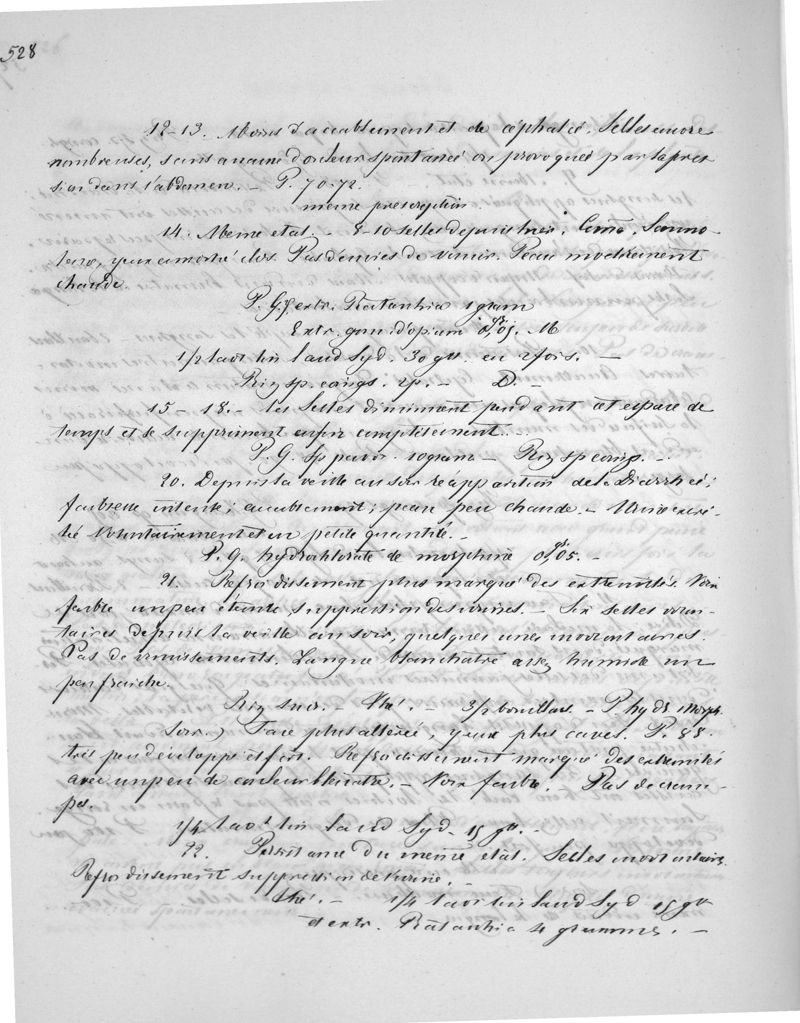 528
12-13. Moins d'accablement et de céphalée. Selles encore
nombreuses, sans aucune douleur spontanée ou provoquée par la pres
sion dans l'abdomen. — P. 70-72.
même prescription.
14. Même état. — 8-10 selles depuis hier. Somno-
lence, yeux à moitié clos. Pas d'envies de vomir. Peau modérément
chaude.
P. G. extr. Ratanhia 1 gram
Extr. gom. d'opium 0,05. M
1/2 lavt lin laud Syd. 30 gtt. en 2 fois. —
Riz sp. coings. 2p. — D. —
15-18. — Les selles diminuent pendant cet espace de
temps et se suppriment enfin complètement. —
P. G. sp pavor. 10 gram — Riz sp coing. —
20. Depuis la veille au soir réapparition de la Diarrhée;
faiblesse intense; accablement; peau peu chaude. — Urine excré-
tée volontairement et en petite quantité. —
P. G. hydrochlorate de morphine 0,05. —
21. Refroidissement plus marqué des extrémités. Voix
faible un peu éteinte, suppression des urines. — Six selles volon-
taires depuis la veille au soir, quelques unes involontaires.
Pas de vomissements. Langue blanchâtre assez humide un
peu fraîche.
Riz sucr. — Thé. — 3/2 bouillon. — P. hydr morph.
Soir.) Face plus altérée, yeux plus caves. P. 88.
très peu développé et fin. Refroidissement marqué des extrémités
avec un peu de couleur bleuâtre. — Voix faible. Pas de cram-
pes.
1/4 lavt lin laud Syd. 15 gtt. —
22. Persistance du même état. Selles involontaires.
Refroidissement suppression de l'urine. —
Thé. — 1/4 lavt lin laud Syd 15 gtt
et extr. Ratanhia 4 grammes. —